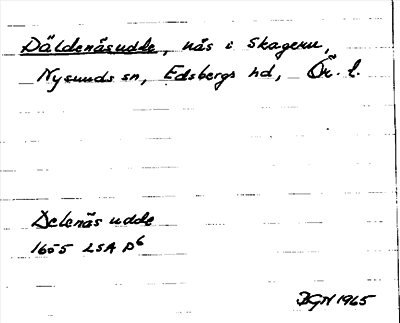 Däldenäsudde, näs i Skagern,
Nysunds sn, Edsbergs hd, Ör. l.
Delenäs udde
1655 LSA P6
BGN 1965